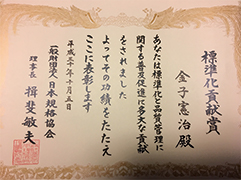 標準化貢献賞
金子憲治殿
あなたは標準化と品質管理に
関する普及促進に多大な貢献
をされました
よってその功績をたたえ
ここに表彰します
平成三十年十月五日
一般財団法人日本規格協会
理事長 揖斐敏夫